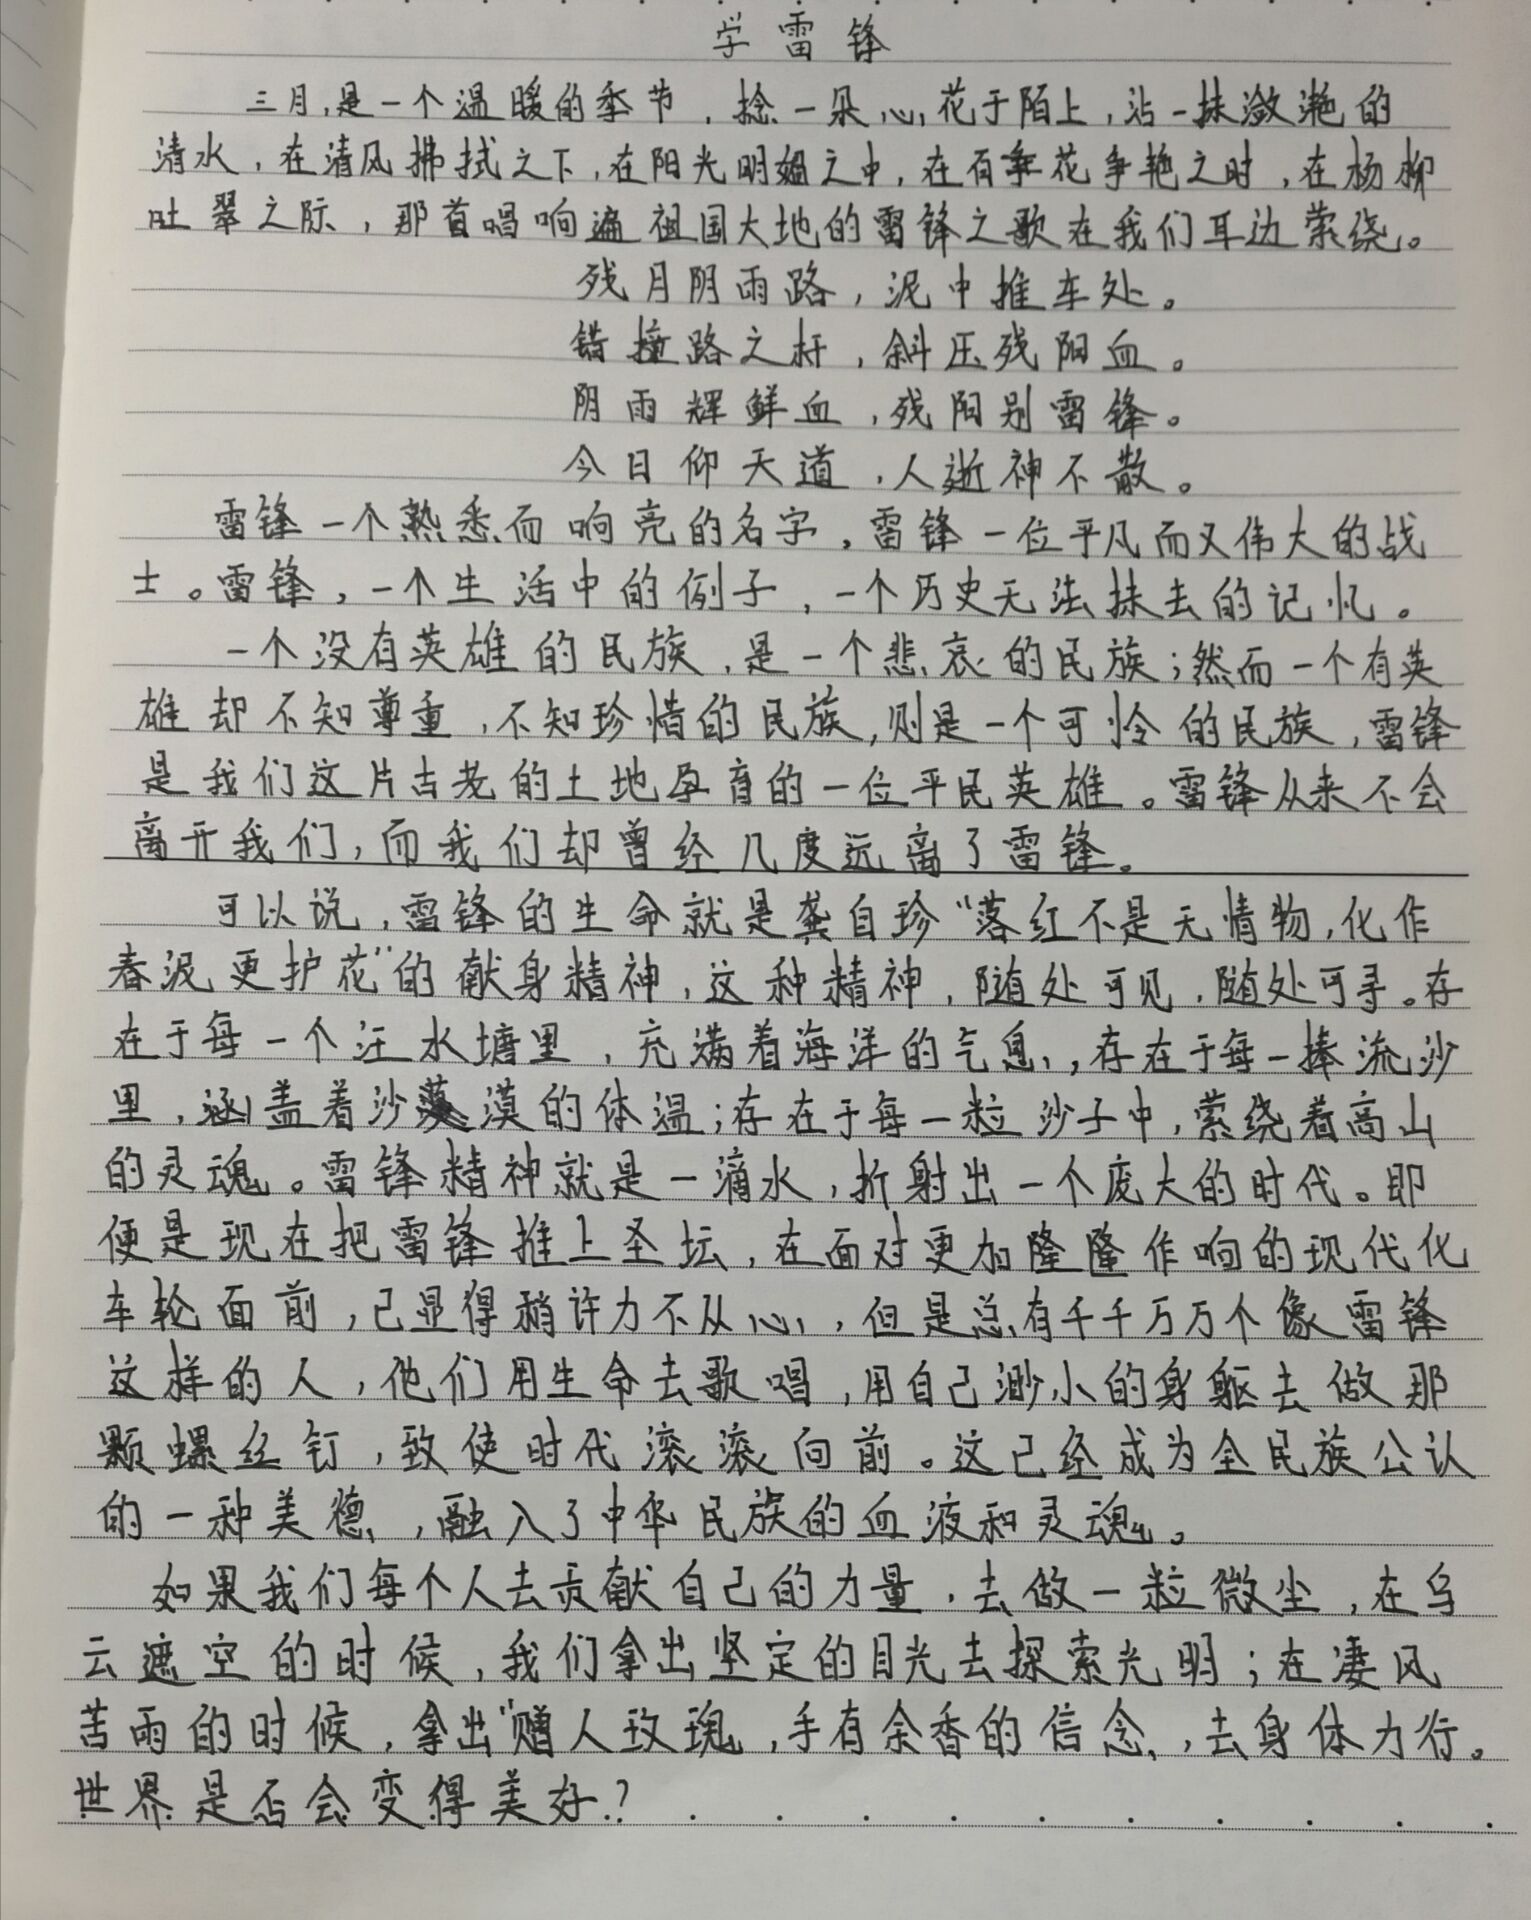 学雷锋
三月,是一个温暖的季节,捻一朵心花于陌上,沾一抹潋滟的
清水,在清风拂拭之下,在阳光明媚之中,在百花争艳之时,在杨柳
吐翠之际,那首唱响遍祖国大地的雷锋之歌在我们耳边萦绕。
残月阴雨路,泥中推车处。
错撞路之杆,斜压残阳血。
阴雨辉鲜血,残阳别雷锋。
今日仰天道,人逝神不散。
雷锋一个熟悉而响亮的名字,雷锋一位平凡而又伟大的战
士。雷锋,一个生活中的例子,一个历史无法抹去的记忆。
一个没有英雄的民族,是一个悲哀的民族;然而一个有英
雄却不知尊重,不知珍惜的民族,则是一个可怜的民族,雷锋
是我们这片古老的土地孕育的一位平民英雄。雷锋从来不会
离开我们,而我们却曾经几度远离了雷锋。
可以说,雷锋的生命就是龚自珍“落红不是无情物,化作
春泥更护花”的献身精神,这种精神,随处可见,随处可寻。存
在于每一个汪水塘里,充满着海洋的气息,存在于每一捧流沙
里,涵盖着沙漠的体温;存在于每一粒沙子中,萦绕着高山
的灵魂。雷锋精神就是一滴水,折射出一个庞大的时代。即
便是现在把雷锋推上圣坛,在面对更加隆隆作响的现代化
车轮面前,已显得稍许力不从心,但是总有千千万万个像雷锋
这样的人,他们用生命去歌唱,用自己渺小的身躯去做那
颗螺丝钉,致使时代滚滚向前。这已经成为全民族公认
的一种美德,融入了中华民族的血液和灵魂。
如果我们每个人去贡献自己的力量,去做一粒微尘,在乌
云遮空的时候,我们拿出坚定的目光去探索光明;在凄风
苦雨的时候,拿出“赠人玫瑰,手有余香的信念,去身体力行。
世界是否会变得美好?